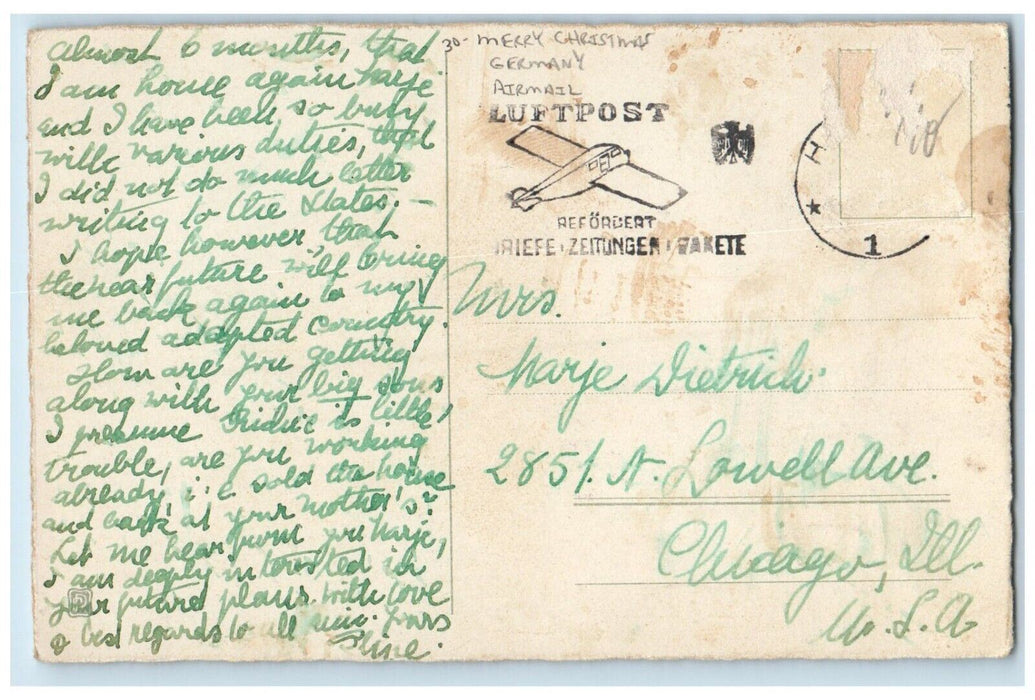 Almost 6 months, that
I am home again Marje
and I have been so busy
with various duties, that
I did not do much letter
writing to the States. —
I hope however, that
the near future will bring
me back again to my
beloved adapted country.
How are you getting
along with your big sons
I presume is little
trouble, are you working
already, i.e. sold the house
and back at your mother's?
Let me hear from you Marje,
I am deeply interested in
your future plans. With love
& best regards to all Yours
30- MERRY CHRISTMAS
GERMANY
AIRMAIL
LUFTPOST
BEFÖRDERT
BRIEFE · ZEITUNGEN · PAKETE
H
1
Mrs.
Marje Dietrich
2851. N. Lowell Ave.
Chicago, Ill.
U.S.A